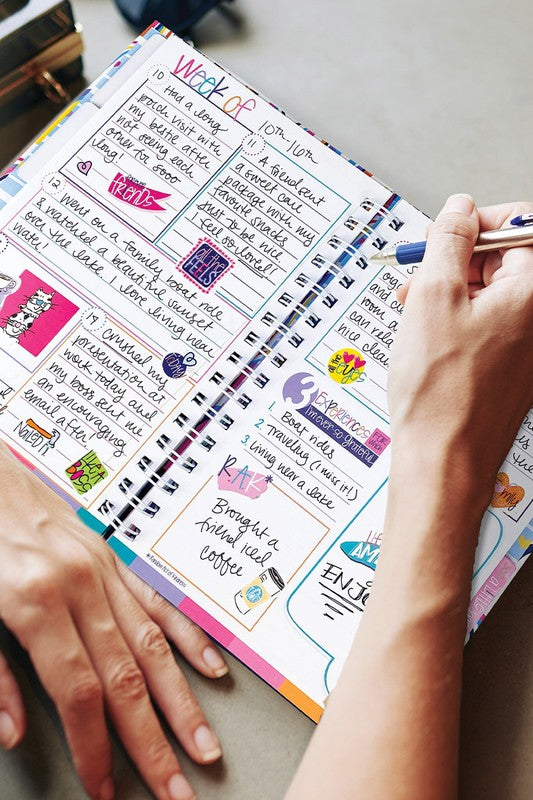 Week of
10th-16th
10 Had a long
porch visit with
my bestie after
not seeing each
other for sooo
long!
friends
11 A friend sent
a sweet care
package with my
favorite snacks
just to be nice
I feel so loved!
all the
FEELS
12 Went on a family boat ride
& watched a beautiful sunset
over the lake. I love living near
water!
14 Crushed my
presentation at
work today and
my boss sent me
an encouraging
email after!
Nailed it
LIKE A
BOSS
and
room
can
nice
all the
eyes
3
EXPERIENCES
I'm over so grateful
1. Boat rides
2. Traveling (I miss it!)
3. Living near a lake
RAK*
Brought a
friend iced
coffee
*Random Act of Kindness
LIFE
AMA
ENJOY
family
a little